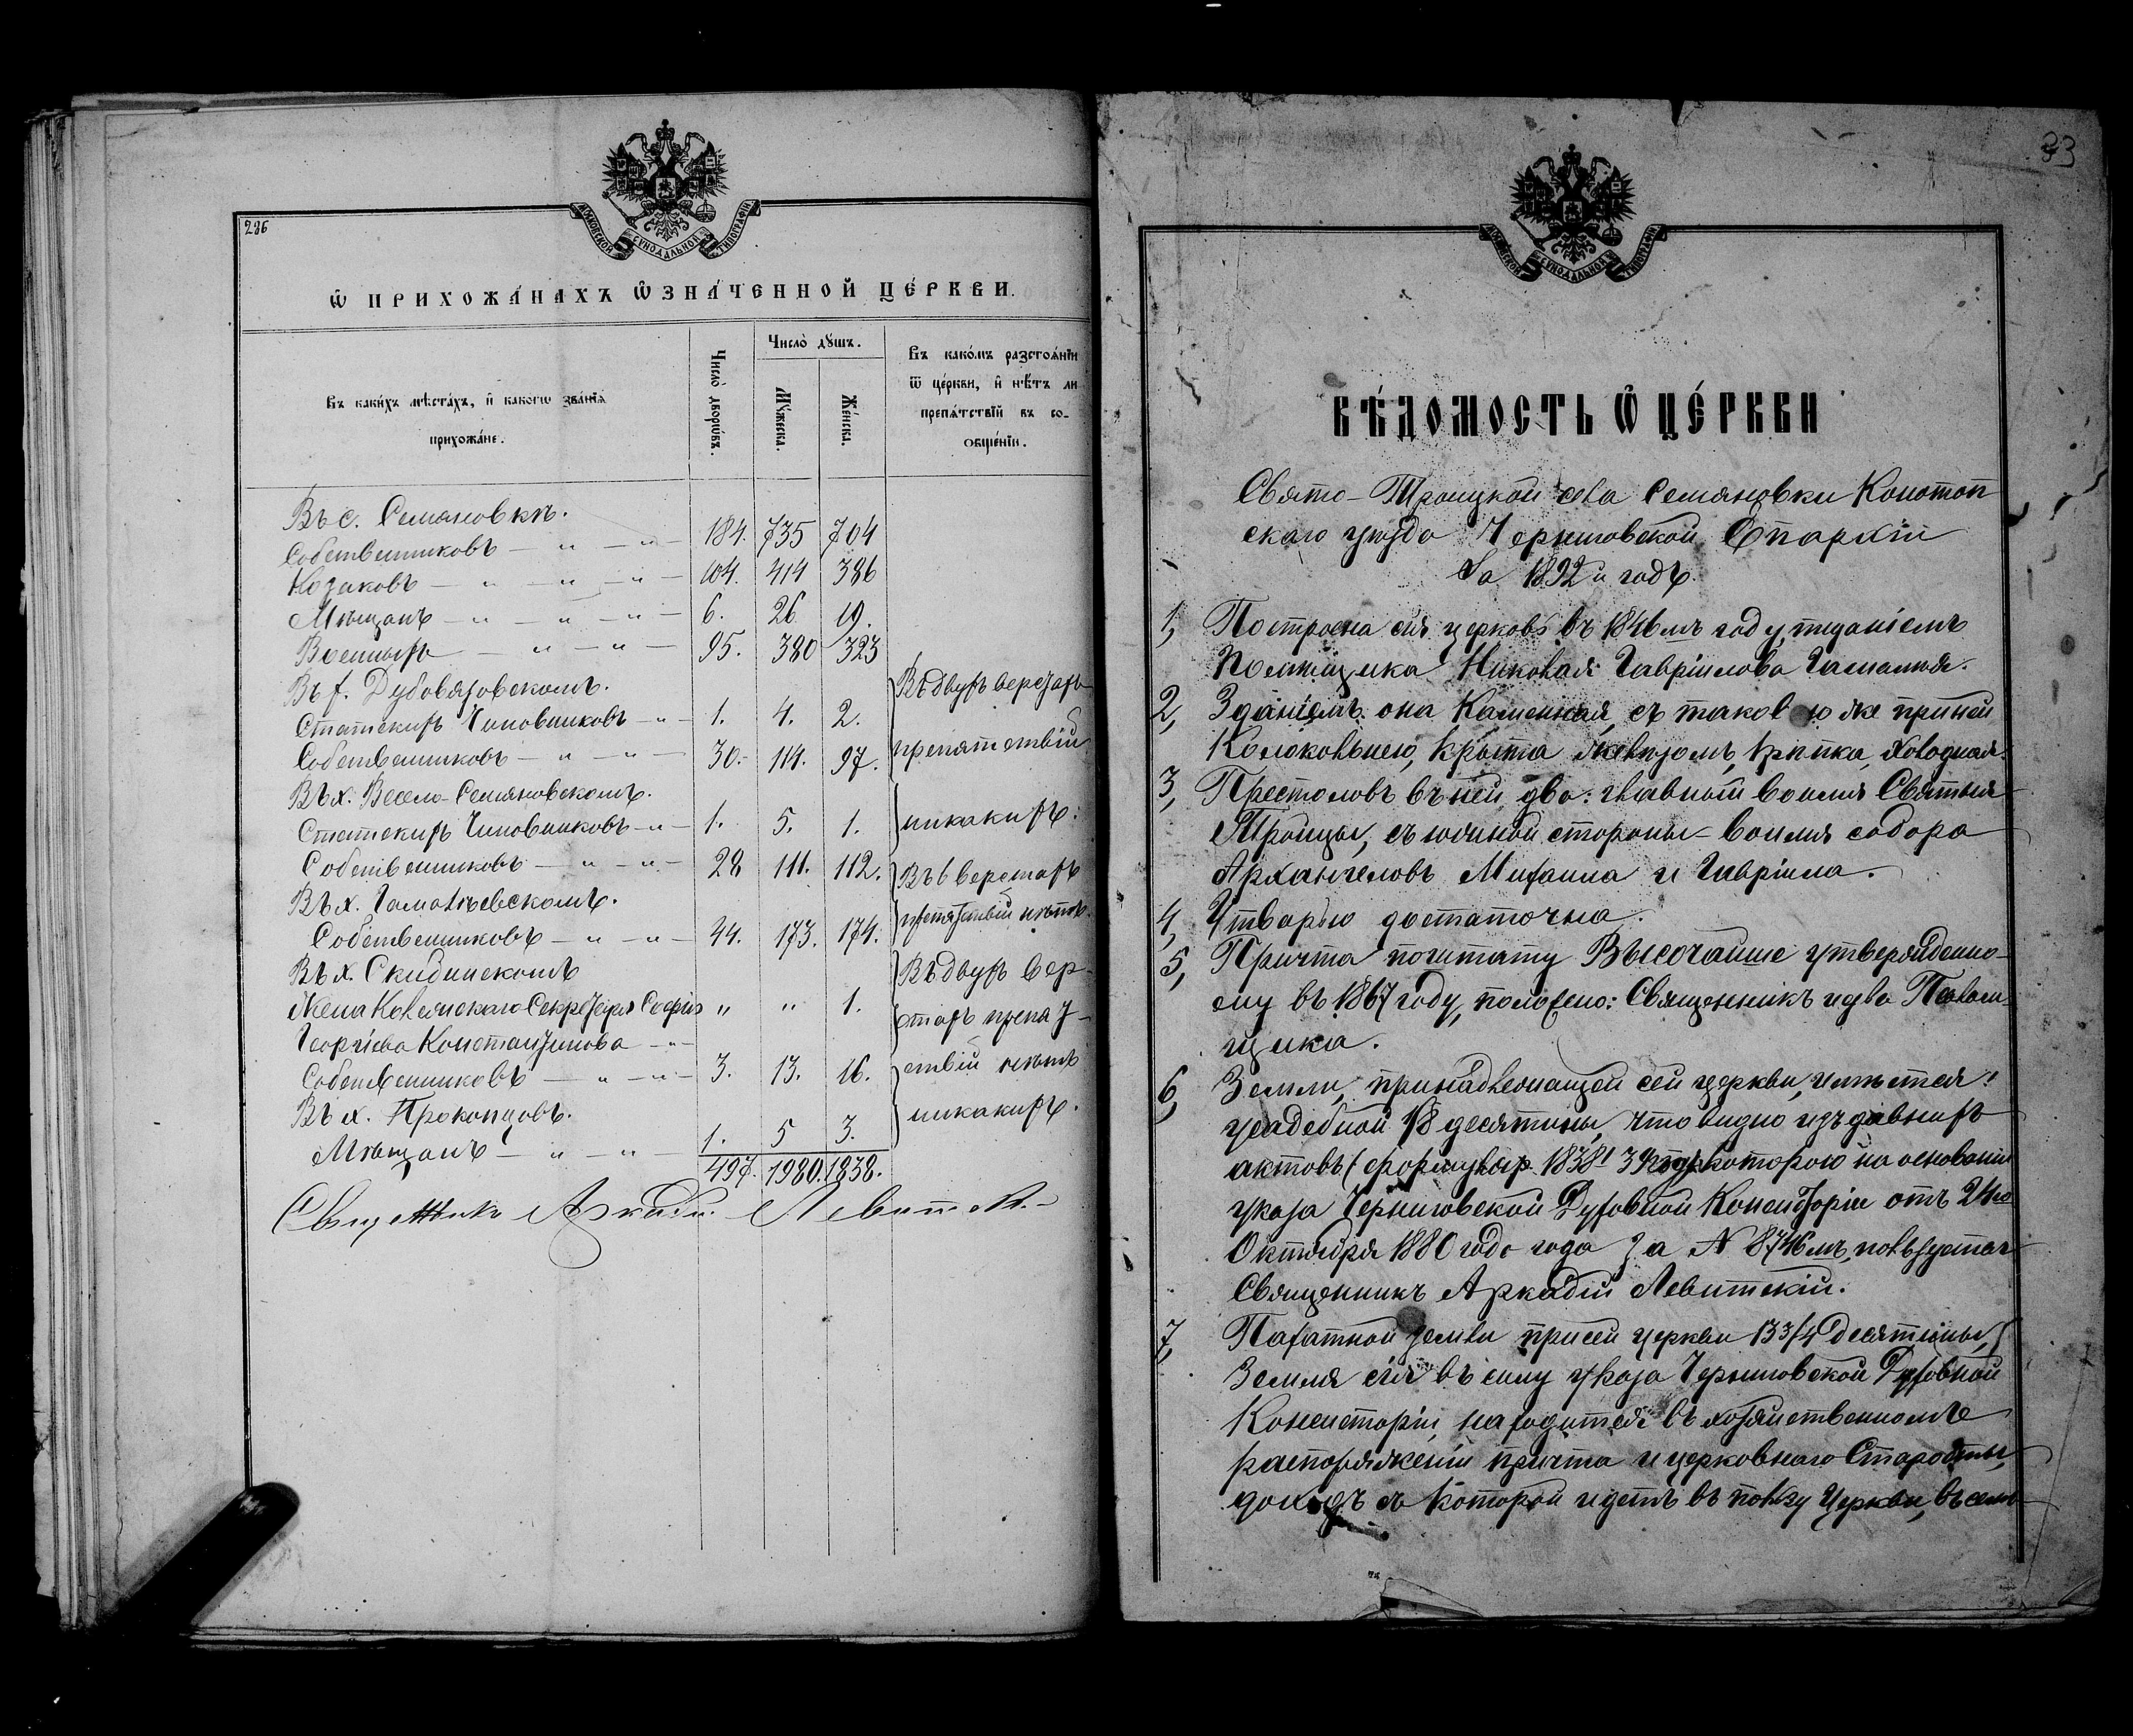 МОСКОВСКОЙ СѴНОДАЛЬНОЙ ТИПОГРАФІИ
236
Ѿ ПРИХОЖА́НАХЪ Ѡ҆ЗНА́ЧЕННОЙ ЦЕ́РКВИ.
Въ каки́хъ мѣста́хъ, и҆ какогѡ зва́нїѧ прихожа́не.
Число̀ дворѡ́въ.
Число̀ дꙋ́шъ.
Мꙋ́жеска.
Же́нска.
Въ како́мъ разстоѧ́нїи
ѿ це́ркви, и҆ нѣ́тъ ли
препѧ́тствїй въ со-
ѻбще́нїи.
Въ с. Семяновкѣ.
Собственниковъ — " — " — 184. 735 704
Козаковъ — " — " — " — 104. 414 386
Мѣщанъ — " — " — " — 6. 26. 19.
Военныхъ — " — " — 95. 380 323
Въ х. Дубовязовскомъ.
Статскихъ Чиновниковъ — " — 1. 4. 2.
Собственниковъ — " — " — 30. 114. 97.
Въ двухъ верстахъ
препятствій
никакихъ.
Въ х. Весело-Семяновскомъ.
Статскихъ Чиновниковъ — " — 1. 5. 1.
Собственниковъ — " — " — 28 111. 112.
Въ 6 верстахъ
препятствій нѣтъ.
Въ х. Гамалѣевскомъ.
Собственниковъ — " — " — 44. 173. 174.
Въ двухъ вер-
стахъ препят-
ствій нѣтъ
никакихъ.
Въ х. Скидинскомъ
Жена Коллежскаго Секретаря Софія " " 1.
Георгіева Константинова — " —
Собственниковъ — " — " — 3. 13. 16.
Въ х. Прокопцовъ.
Мѣщанъ — " — " — 1. 5 3.
497. 1980. 1838.
Священникъ Аркадій Левитскій
33
МОСКОВСКОЙ СѴНОДАЛЬНОЙ ТИПОГРАФІИ
ВѢ́ДОМОСТЬ Ѡ҆ ЦЕ́РКВИ
Свято-Троицкой села Семяновки Конотоп
скаго уѣзда Черниговской Епархіи
За 1892й годъ.
1, Построена сія церковь въ 1846мъ году, тщаніемъ
Помѣщика Николая Гавріилова Гамалѣя.
2, Зданіемъ она Каменная, съ таковою же при ней
Колокольнею, крыта желѣзомъ, крѣпка, холодная.
3, Престоловъ въ ней два: главный во имя Святыя
Троицы, съ южной стороны — во имя собора
Архангеловъ Михаила и Гавріила.
4, Утварью достаточна.
5, Причта по штату Высочайше утвержденно-
му въ 1867 году, положено: Священникъ и два Псалом-
щика.
6, Земли, принадлежащей сей церкви, имѣется:
усадебной 1/8 десятины, что видно изъ давнихъ
актовъ которою на основаніи
указа Черниговской Духовной Консисторіи отъ 24го
Октября 1880 года за № 8746мъ, пользуется
Священникъ Аркадій Левитскій.
7, Пахатной земли при сей церкви 13 3/4 десятины,
Земля сія въ силу указа Черниговской Духовной
Консисторіи, находится въ хозяйственномъ
распоряженіи причта и церковнаго Старосты,
доходъ съ которой идетъ въ пользу Церкви, въ семъ